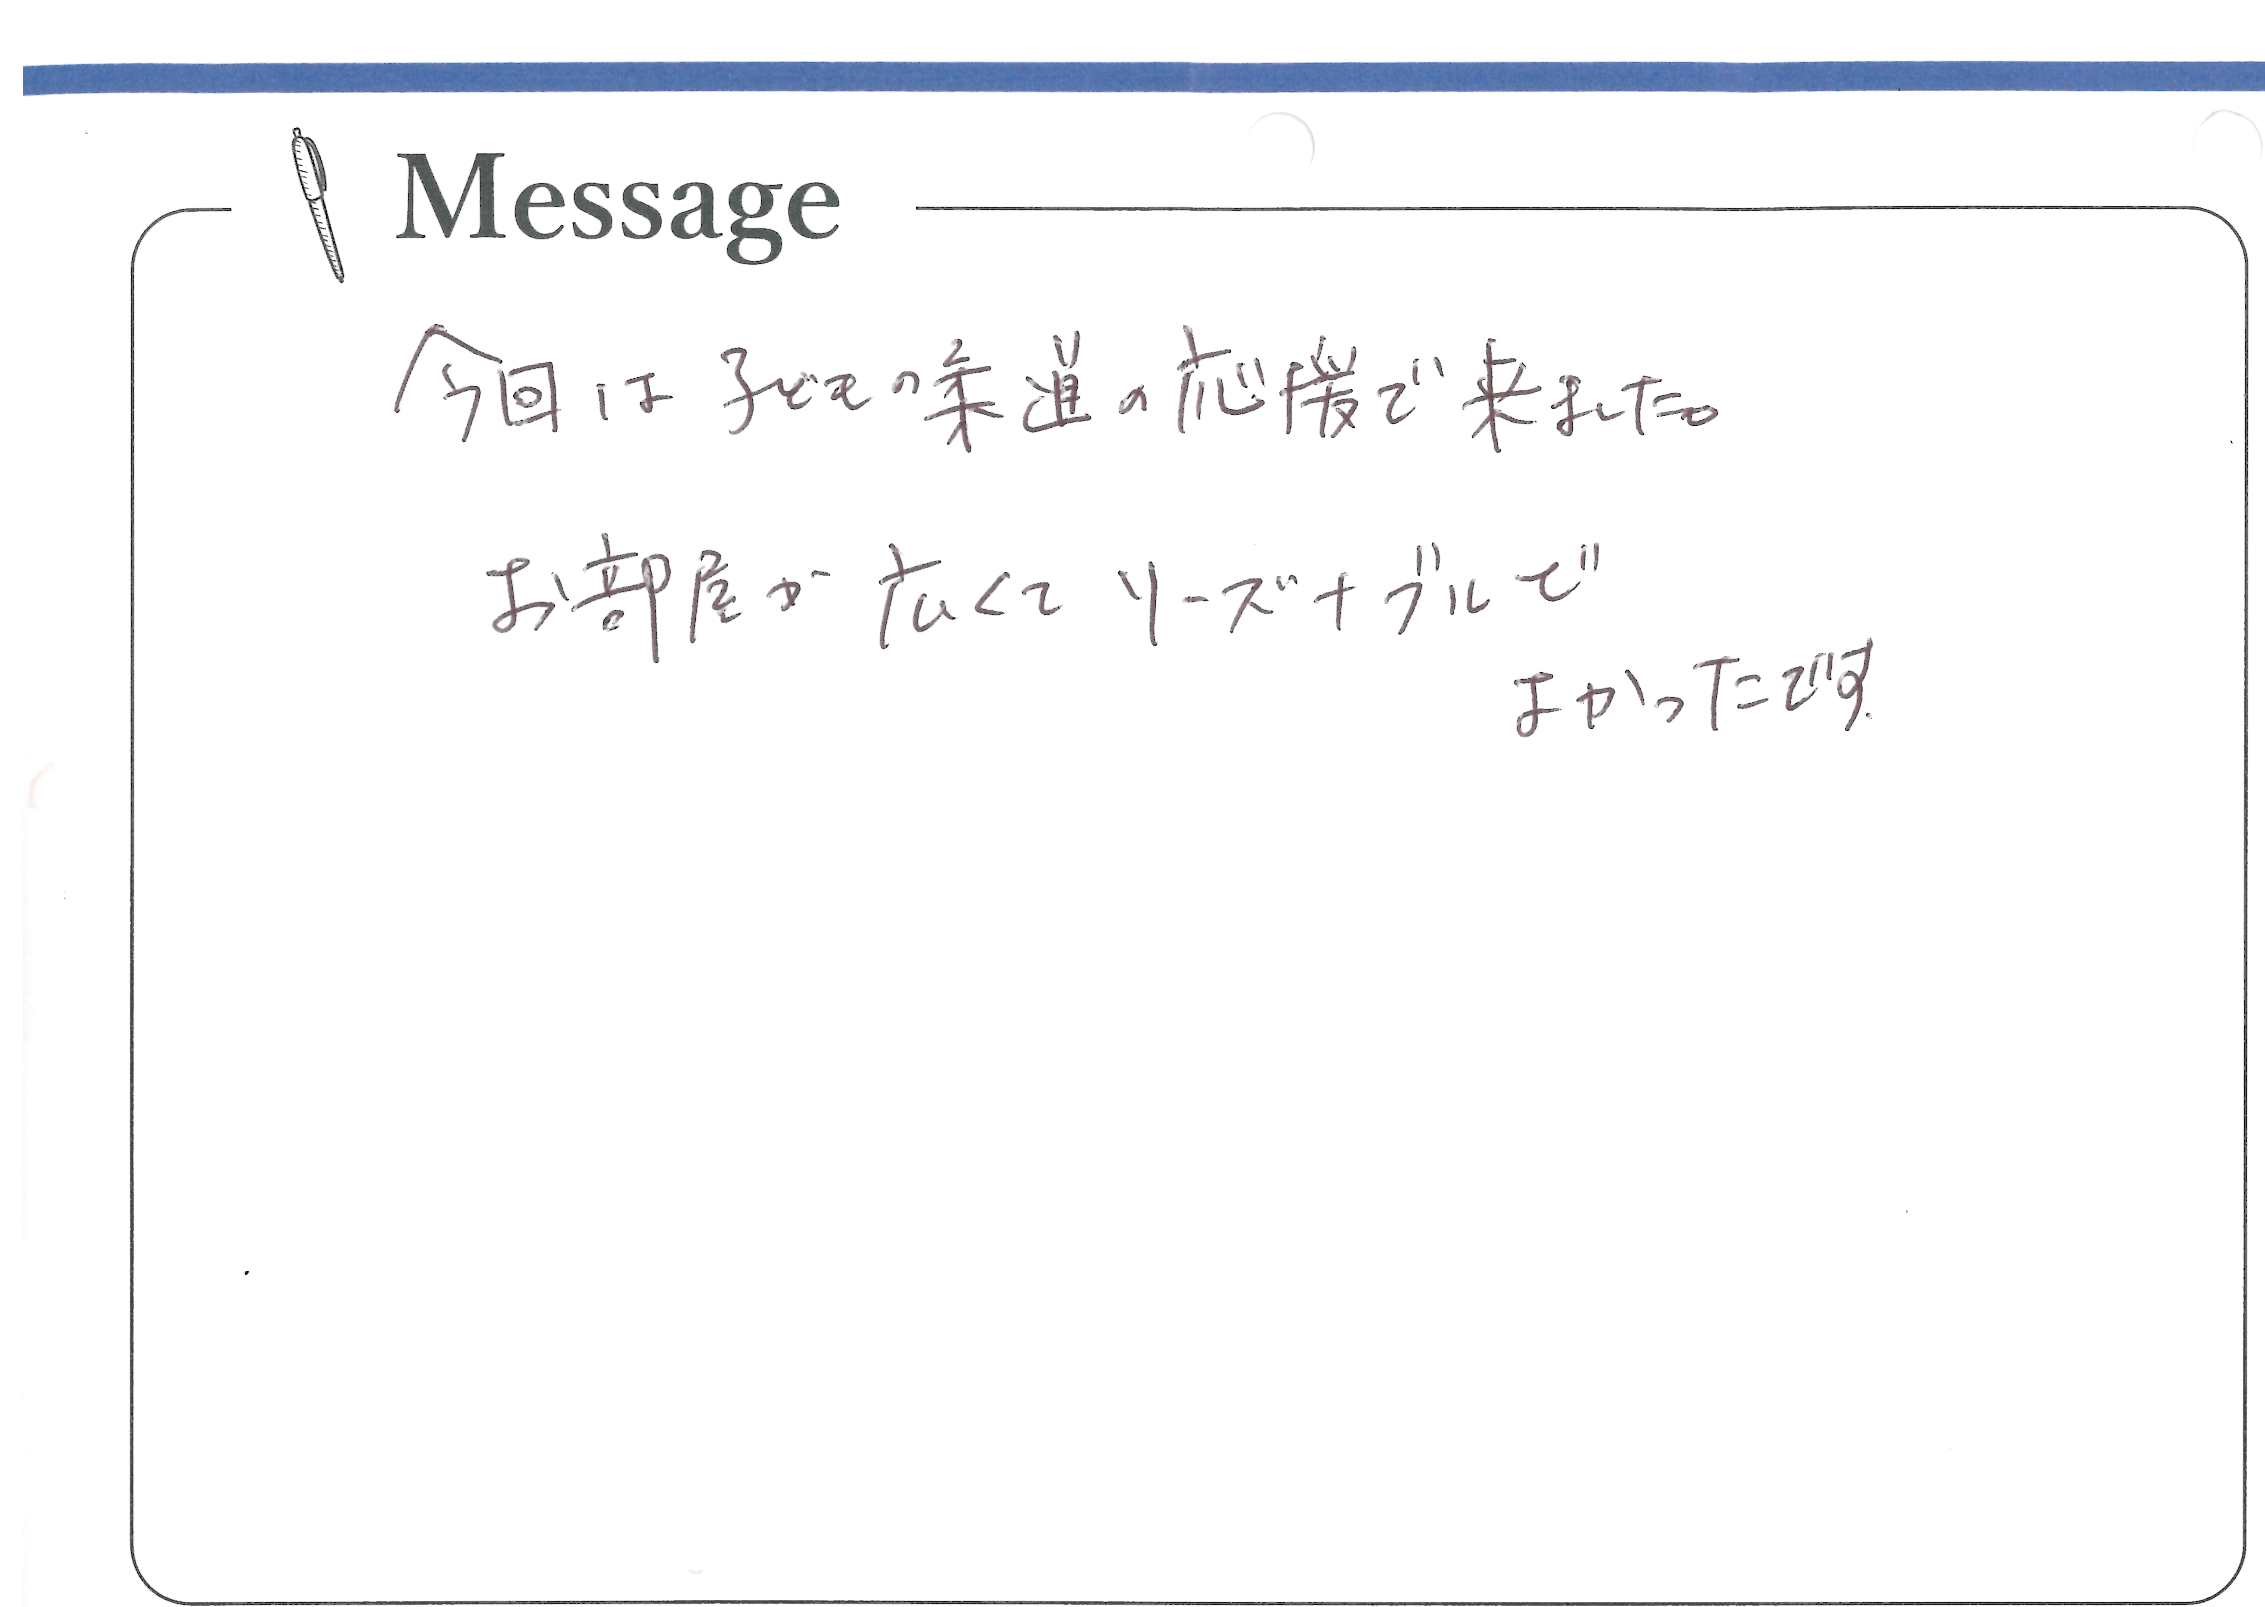 Message
今回は子どもの柔道の応援で来ました。
お部屋が広くてリーズナブルで
よかったです